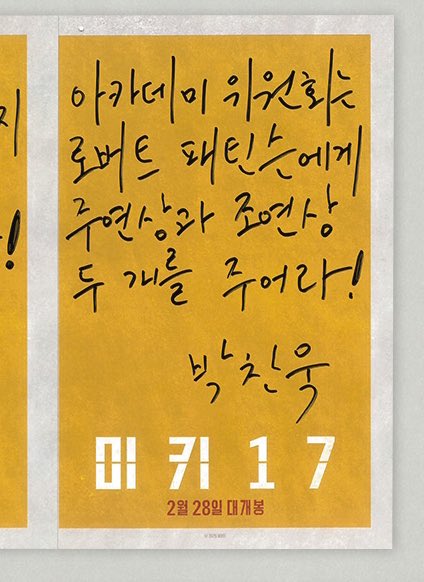 아카데미 위원회는
로버트 패틴슨에게
주연상과 조연상
두 개를 주어라!
박찬욱
미키 17
2월 28일 대개봉
지
!